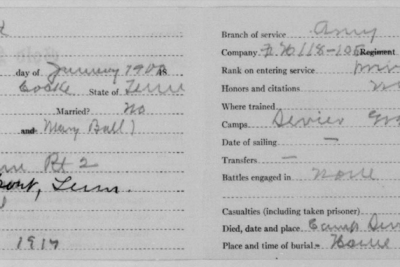 day of January 1900 18
Cocke State of Tenn
Married? No
and Mary Ball)
Rt 2
Tenn.
1917
Branch of service Army
Company 118-105 Regiment
Rank on entering service
Honors and citations
Where trained
Camps Sevier
Date of sailing —
Transfers —
Battles engaged in None
Casualties (including taken prisoner)
Died, date and place Camp
Place and time of burial- Home